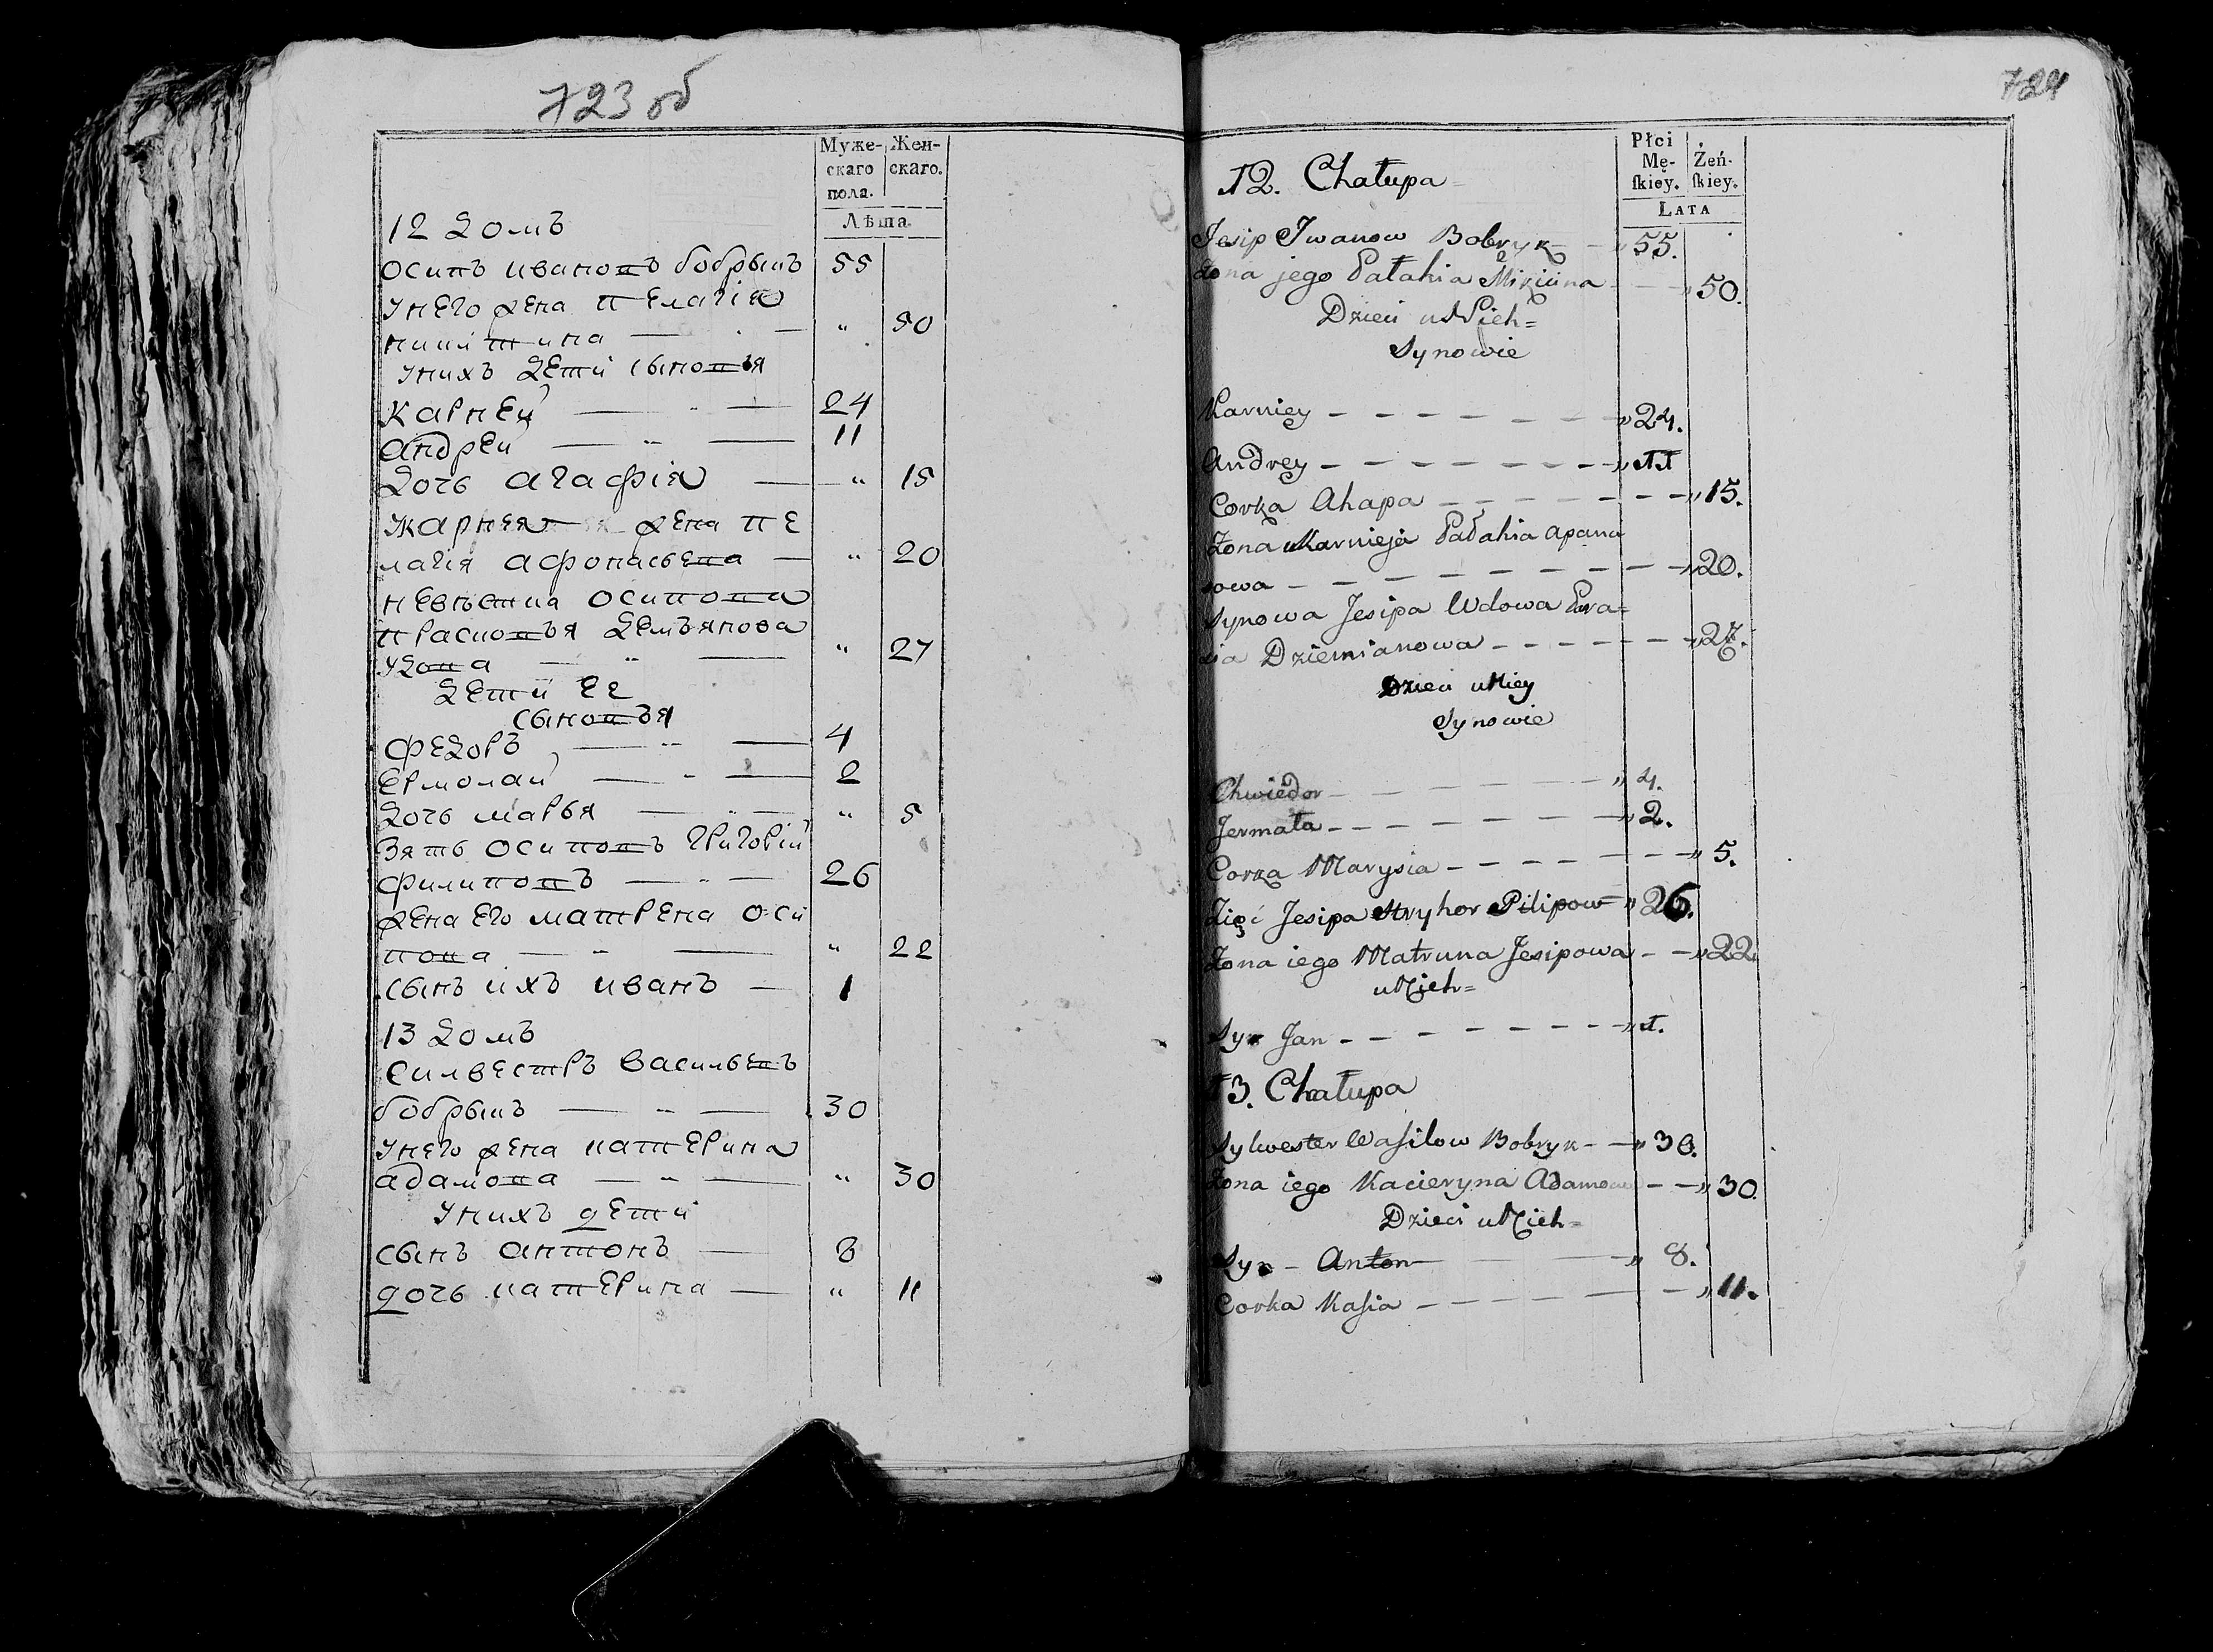 723 об
Муже-
скаго
пола.
Жен-
скаго.
Лѣта.
12 домъ
осипъ ивановъ бобрыкъ 55
унего жена пелагія
никитина — " 50
унихъ дети сыновья
карней — " — 24
андрей — " — 11
дочь агафія — " 15
карнея жена пе
лагія афонасьева — " 20
невѣстка осипова
прасковья демьянова
удова — " — " 27
дети ее
сыновья
федоръ — " — 4
ермолай — " — 2
дочь марья — " — " 5
зять осиповъ григорій
филиповъ — " — 26
жена его матрена оси
пова — " — " 22
сынъ ихъ иванъ — 1
13 домъ
силвестръ васильевъ
бобрыкъ — " — 30
унего жена катерина
адамова — " — " 30
унихъ дети
сынъ антонъ — 8
дочь катерина — " 11
724
Płci
Mę-
skiey.
Żeń-
skiey.
LATA
12. Chałupa
Jesip Iwanow Bobryk — " 55.
Żona jego Pałahia — " 50.
Dzieci u Nich =
Synowie
Karniey — — — " 24.
Andrey — — — " 11
Corka Ahapa — — — " 15.
Żona Karnieja Pałahia Apana
sowa — — — " 20.
Synowa Jesipa Wdowa
Dziemianowa — — — " 27.
Dzieci u Niey
Synowie
Chwiedor — — — " 4.
Jermała — — — " 2.
Corka Marysia — — — " 5.
Zięć Jesipa Hryhor Pilipow " 26.
Żona iego Matruna Jesipowa — — " 22.
u Nich =
Syn Jan — — — " 1.
13. Chałupa
Sylwester Wasilow Bobryk — — " 30.
Żona iego Kacieryna Adamowa — — " 30.
Dzieci u Nich =
Syn — Anton — " 8.
Corka Kasia — — — " 11.